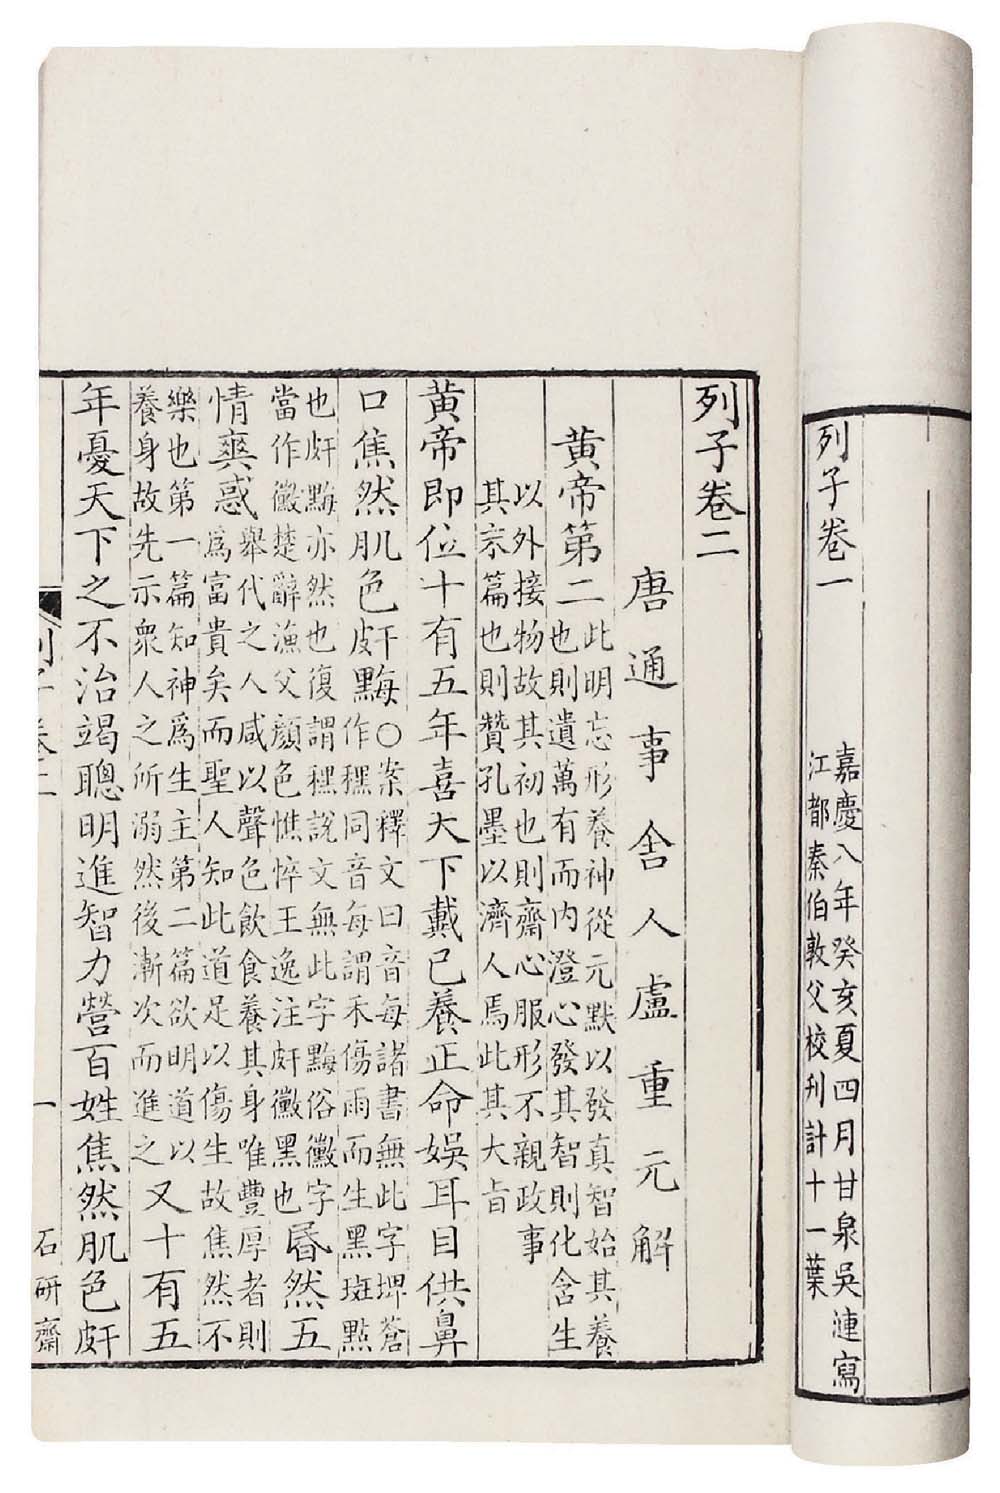 列子卷一
嘉慶八年癸亥夏四月甘泉吳漣寫
江都秦伯敦父校刊計十一葉
列子卷二
唐通事舍人盧重元解
黄帝第二
此明忘形養神從元默以發真智始其養
也則遺萬有而內澄心發其智則化含生
以外接物故其初也則齋心服形不親政事
其末篇也則贊孔墨以濟人焉此其大旨
黄帝即位十有五年喜天下戴已養正命娛耳目供鼻
口焦然肌色皯黣
○案釋文曰音每諸書無此字埤蒼
作䅏同音每謂禾傷雨而生黑斑點
也皯黣亦然也復謂䅏說文無此字黣俗黴字
當作黴楚辭漁父顏色憔悴王逸注皯黴黑也
昬然五
情爽惑
舉代之人咸以聲色飲食養其身唯豐厚者則
爲富貴矣而聖人知此道足以傷生故焦然不
樂也第一篇知神爲生主第二篇欲明道以
養身故先示衆人之所溺然後漸次而進之
又十有五
年憂天下之不治竭聰明進智力營百姓焦然肌色皯
列子卷二
一
石研齋